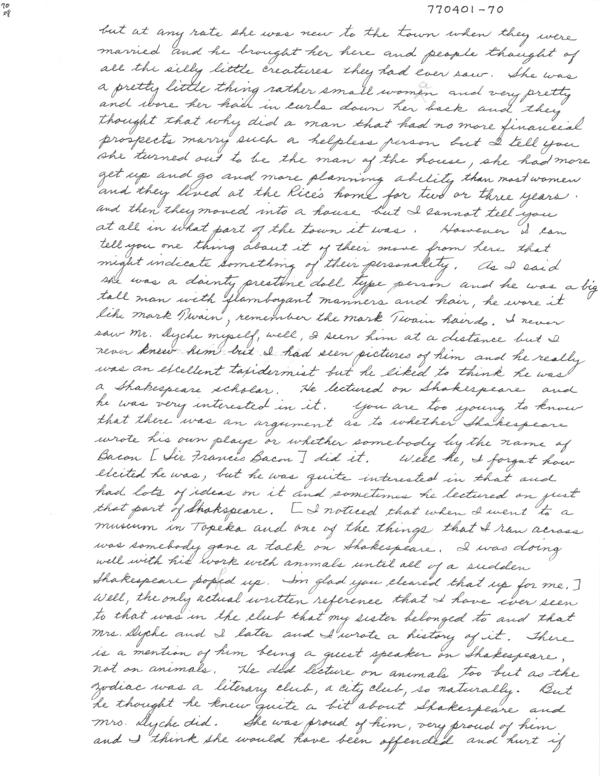 70
28
770401-70
but at any rate she was new to the town when they were
married and he brought her here and people thought of
all the silly little creatures they had ever saw. She was
a pretty little thing rather small women and very pretty
and wore her hair in curls down her back and they
thought that why did a man that had no more financial
prospects marry such a helpless person but I tell you
she turned out to be the man of the house, she had more
get up and go and more planning ability than most women
and they lived at the Rice's home for two or three years.
and then they moved into a house but I cannot tell you
at all in what part of the town it was. However I can
tell you one thing about it of their move from here that
might indicate something of their personality. As I said
she was a dainty prestine doll type person and he was a big
tall man with flamboyant manners and hair, he wore it
like mark Twain, remember the mark Twain hairdo. I never
saw Mr. Dyche myself, well, I seen him at a distance but I
never knew him but I had seen pictures of him and he really
was an excellent taxidermist but he liked to think he was
a Shakespeare scholar. He lectured on Shakespeare and
he was very interested in it. You are too young to know
that there was an argument as to whether Shakespeare
wrote his own plays or whether somebody by the name of
Bacon [Sir Francis Bacon] did it. Well he, I forgot how
elcited he was, but he was quite interested in that and
had lots of ideas on it and sometimes he lectured on just
that part of Shakspeare. [I noticed that when I went to a
museum in Topeka and one of the things that I ran across
was somebody gave a talk on Shakespeare. I was doing
well with his work with animals until all of a sudden
Shakespeare poped up. Im glad you cleared that up for me.]
Well, the only actual written reference that I have ever seen
to that was in the club that my sister belonged to and that
Mrs. Dyche and I later and I wrote a history of it. There
is a mention of him being a guest speaker on Shakespeare,
not on animals. He did lecture on animals too but as the
zodiac was a literary club, a city club, so naturally. But
he thought he knew quite a bit about Shakespeare and
Mrs. Dyche did. She was proud of him, very proud of him
and I think she would have been offended and hurt if